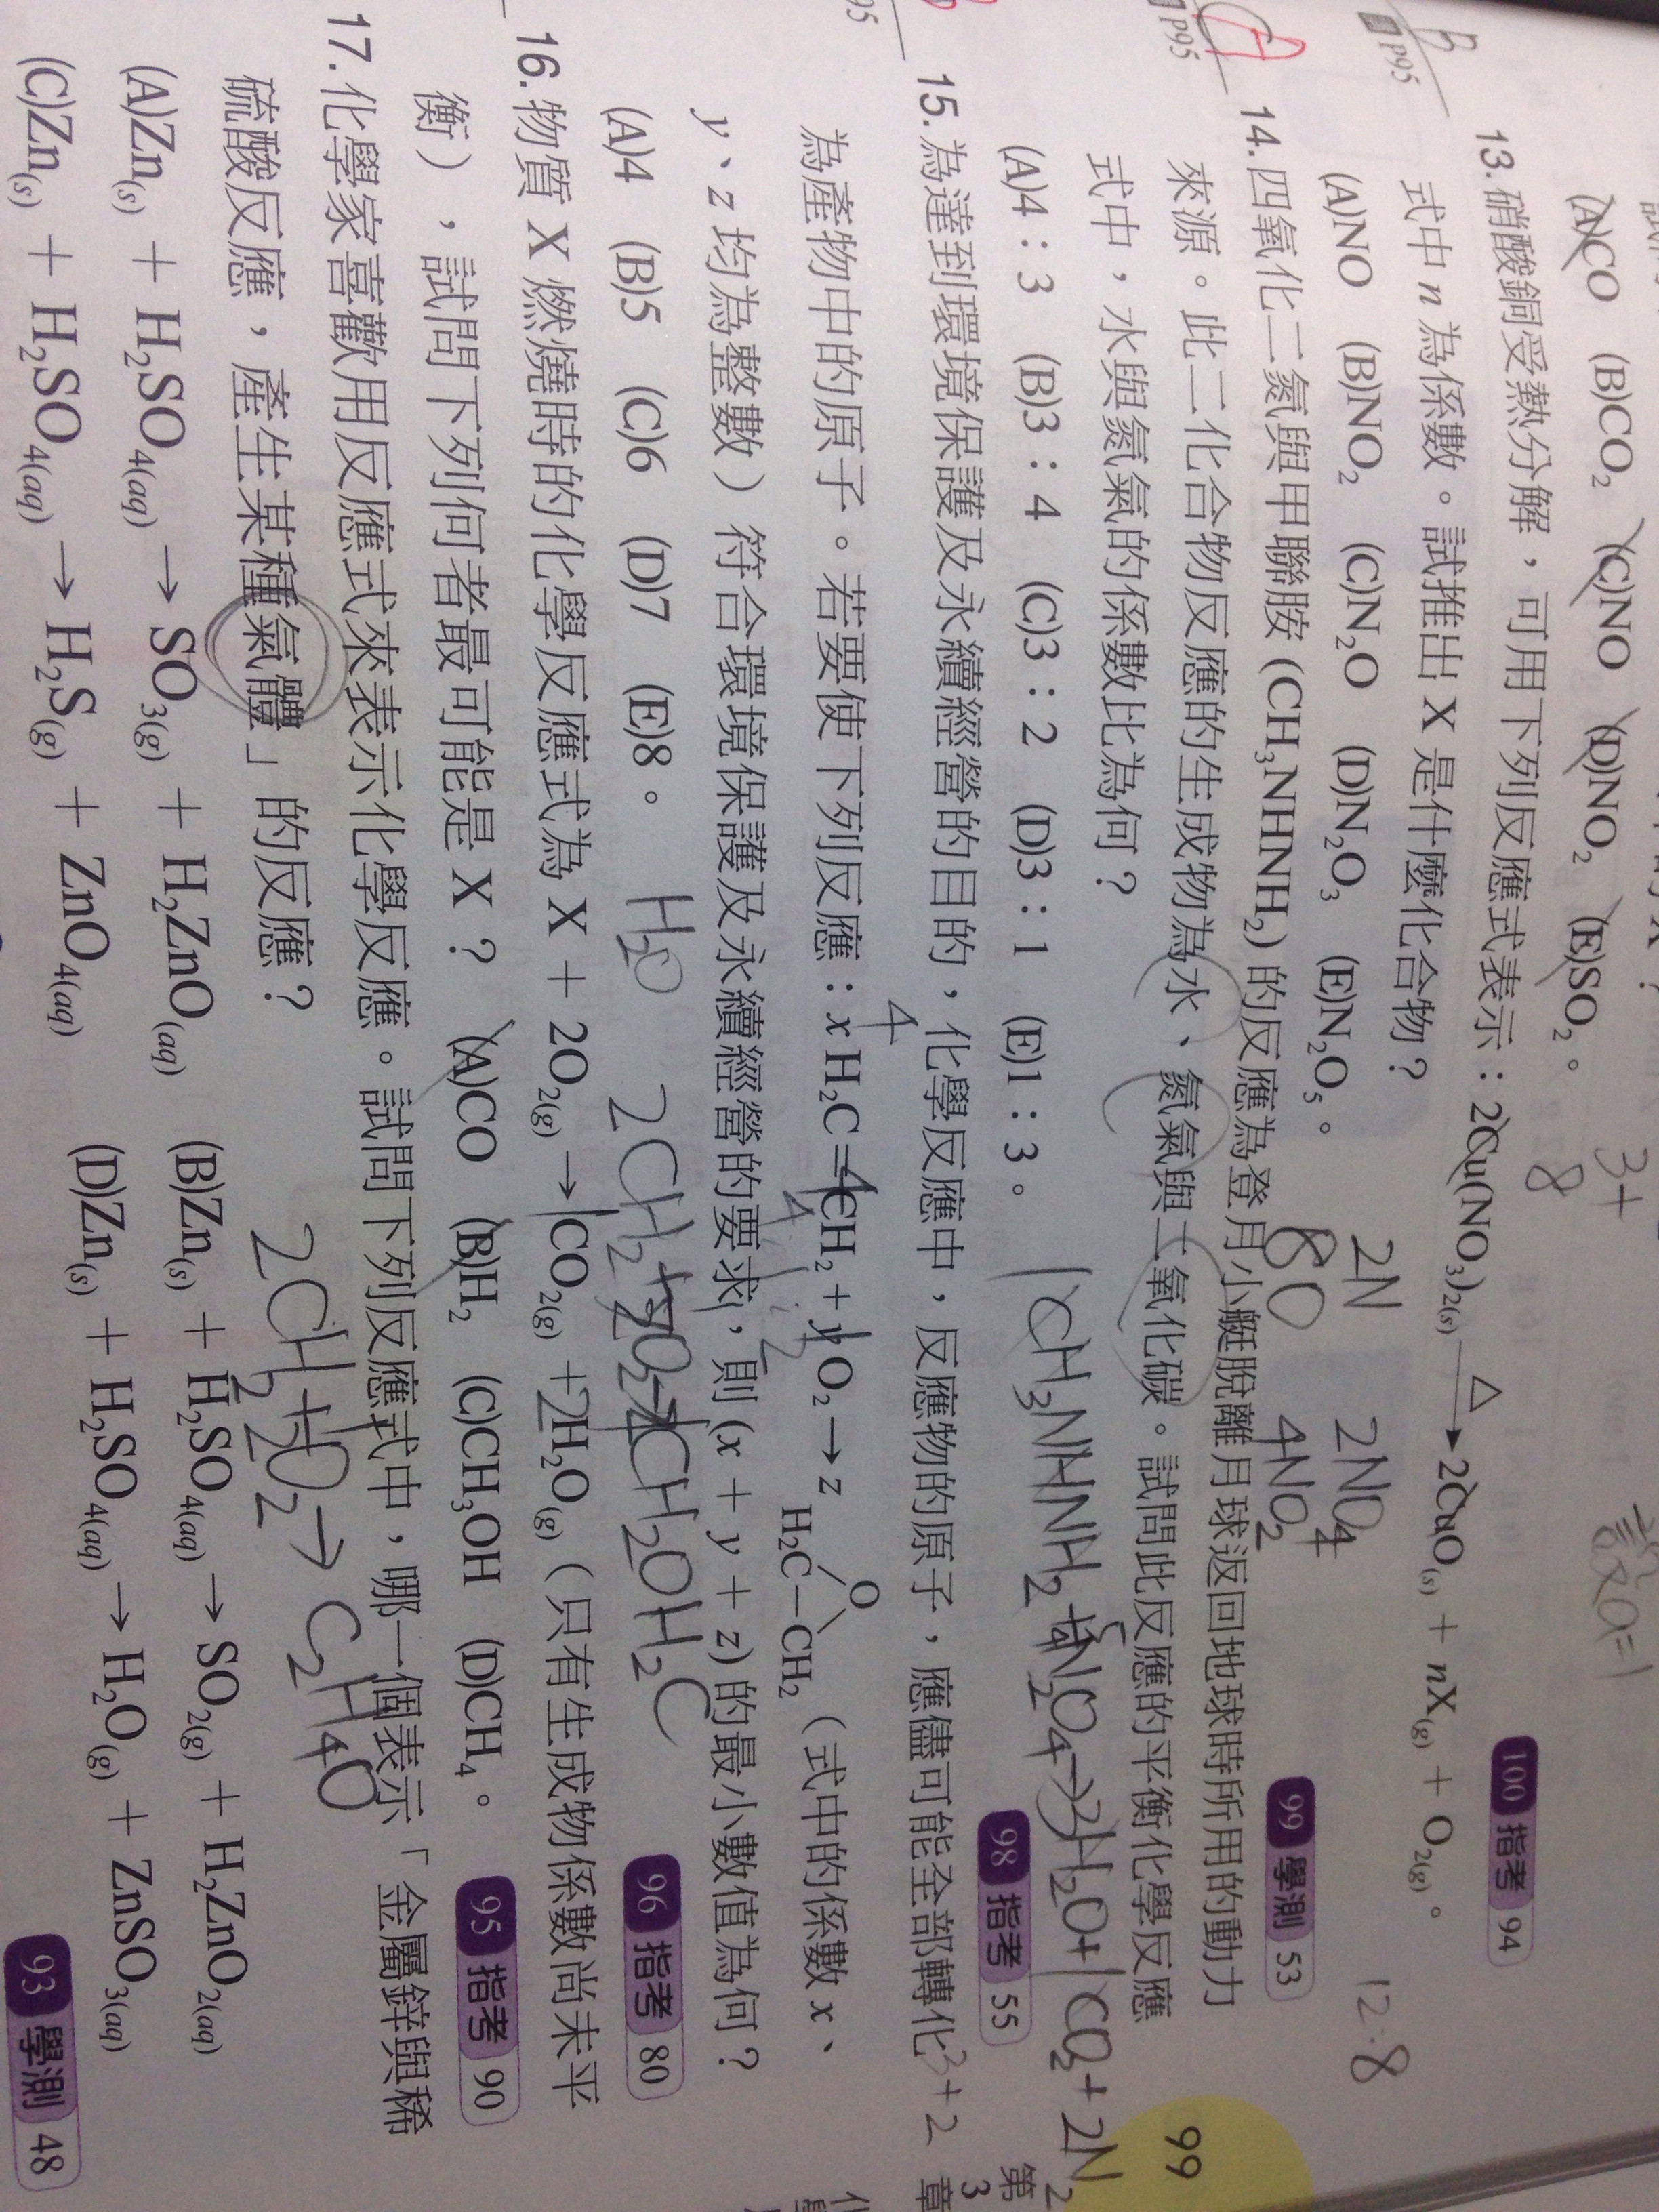 (A)CO (B)CO₂ (C)NO (D)NO₂ (E)SO₂。
3+
8
設a=1
13.硝酸銅受熱分解，可用下列反應式表示：2Cu(NO₃)₂(s) △→ 2CuO(s) + nX(g) + O₂(g)。
式中 n 為係數。試推出 X 是什麼化合物？
100 指考 94
B
P95
(A)NO (B)NO₂ (C)N₂O (D)N₂O₃ (E)N₂O₅。
2N 2NO₄
8O 4NO₂
12:8
99 學測 53
14.四氧化二氮與甲聯胺 (CH₃NHNH₂) 的反應為登月小艇脫離月球返回地球時所用的動力
來源。此二化合物反應的生成物為水、氮氣與二氧化碳。試問此反應的平衡化學反應
式中，水與氮氣的係數比為何？
P95
(A)4：3 (B)3：4 (C)3：2 (D)3：1 (E)1：3。
1CH₃NHNH₂+N₂O₄→3H₂O+1CO₂+2N₂
98 指考 55
15.為達到環境保護及永續經營的目的，化學反應中，反應物的原子，應儘可能全部轉化
3+2
為產物中的原子。若要使下列反應：x H₂C=CH₂ + y O₂ → z H₂C－CH₂ O （式中的係數 x、
y、z 均為整數）符合環境保護及永續經營的要求，則 (x + y + z) 的最小數值為何？
(A)4 (B)5 (C)6 (D)7 (E)8。
H₂O
96 指考 80
16.物質 X 燃燒時的化學反應式為 X + 2O₂(g) → CO₂(g) + 2H₂O(g)（只有生成物係數尚未平
衡），試問下列何者最可能是 X？ (A)CO (B)H₂ (C)CH₃OH (D)CH₄。
95 指考 90
17.化學家喜歡用反應式來表示化學反應。試問下列反應式中，哪一個表示「金屬鋅與稀
硫酸反應，產生某種氣體」的反應？
2CH₂+O₂→C₂H₄O
(A)Zn(s) + H₂SO₄(aq) → SO₃(g) + H₂ZnO(aq) (B)Zn(s) + H₂SO₄(aq) → SO₂(g) + H₂ZnO₂(aq)
(C)Zn(s) + H₂SO₄(aq) → H₂S(g) + ZnO₄(aq) (D)Zn(s) + H₂SO₄(aq) → H₂O(g) + ZnSO₃(aq)
93 學測 48
99
第
3
章